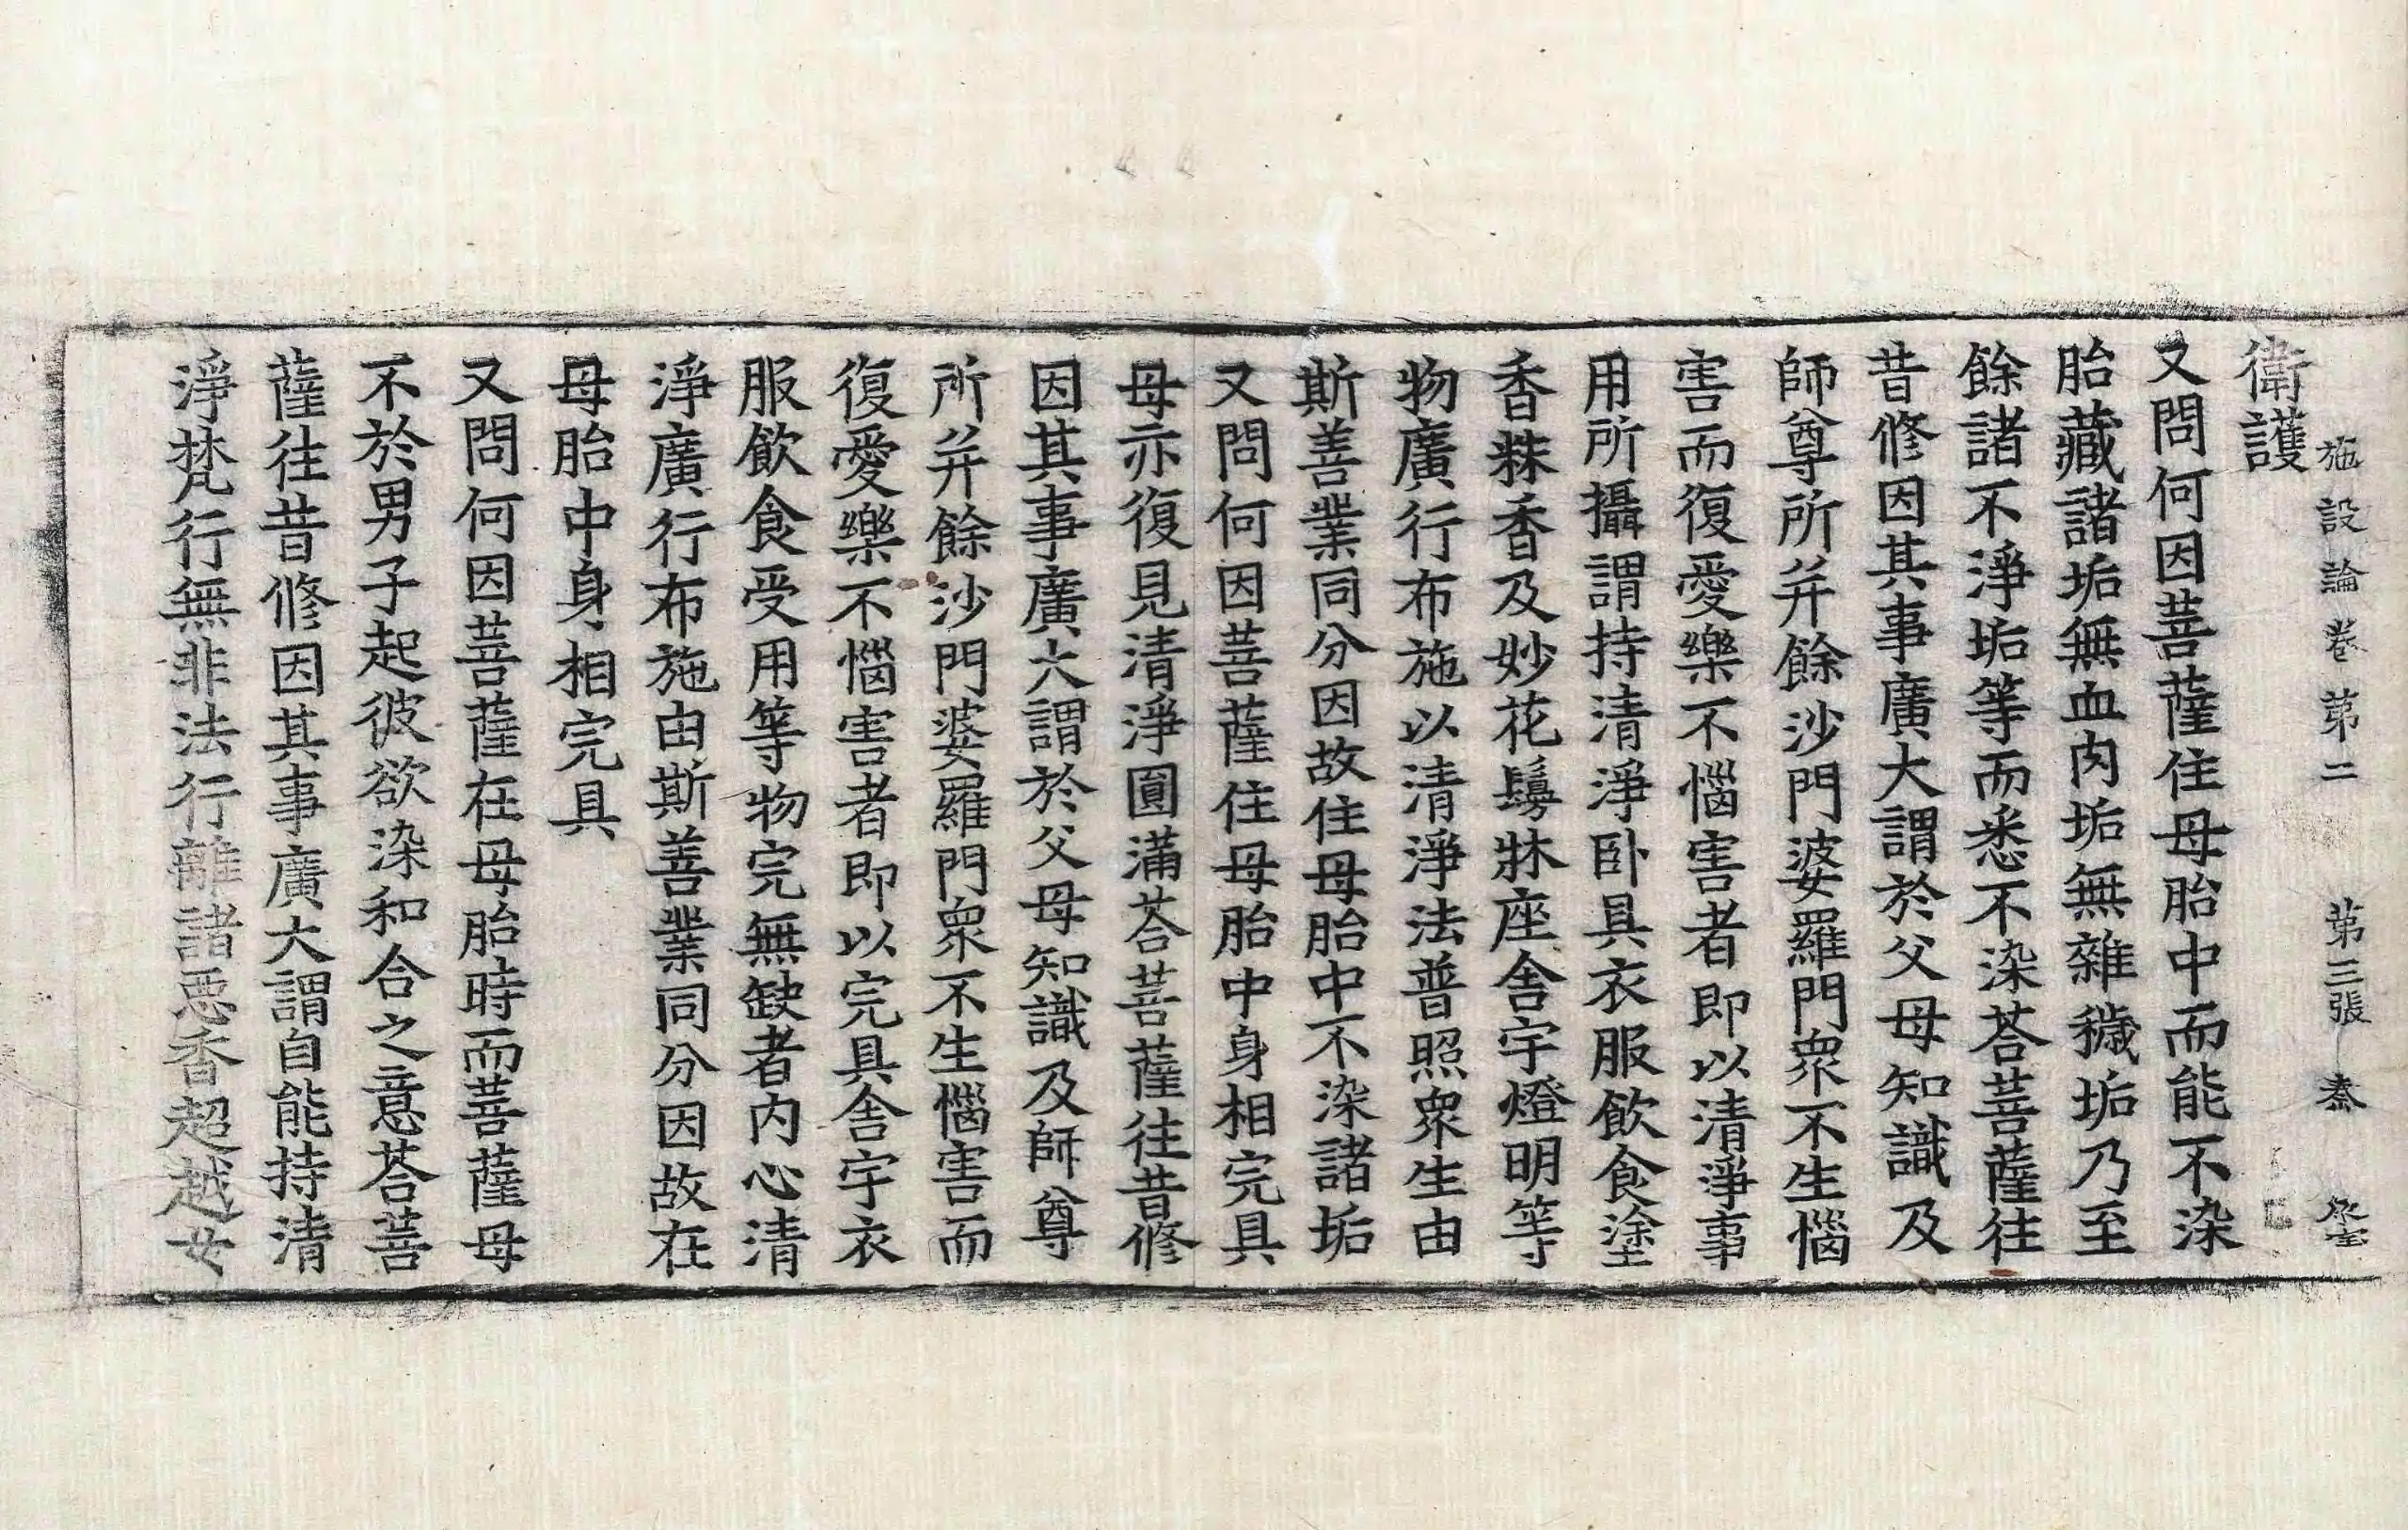 施設論卷第二 第三張 㤗
衛護
又問何因菩薩住母胎中而能不染
胎藏諸垢無血肉垢無雜穢垢乃至
餘諸不淨垢等而悉不染荅菩薩往
昔修因其事廣大謂於父母知識及
師尊所并餘沙門婆羅門衆不生惱
害而復愛樂不惱害者即以清淨事
用所攝謂持清淨卧具衣服飲食塗
香粖香及妙花鬘牀座舍宇燈明等
物廣行布施以清淨法普照衆生由
斯善業同分因故住母胎中不染諸垢
又問何因菩薩住母胎中身相完具
母亦復見清淨圓滿荅菩薩往昔修
因其事廣大謂於父母知識及師尊
所并餘沙門婆羅門衆不生惱害而
復愛樂不惱害者即以完具舍宇衣
服飲食受用等物完無缺者內心清
淨廣行布施由斯善業同分因故在
母胎中身相完具
又問何因菩薩在母胎時而菩薩母
不於男子起彼欲染和合之意荅菩
薩往昔修因其事廣大謂自能持清
淨梵行無非法行離諸惡香超越女